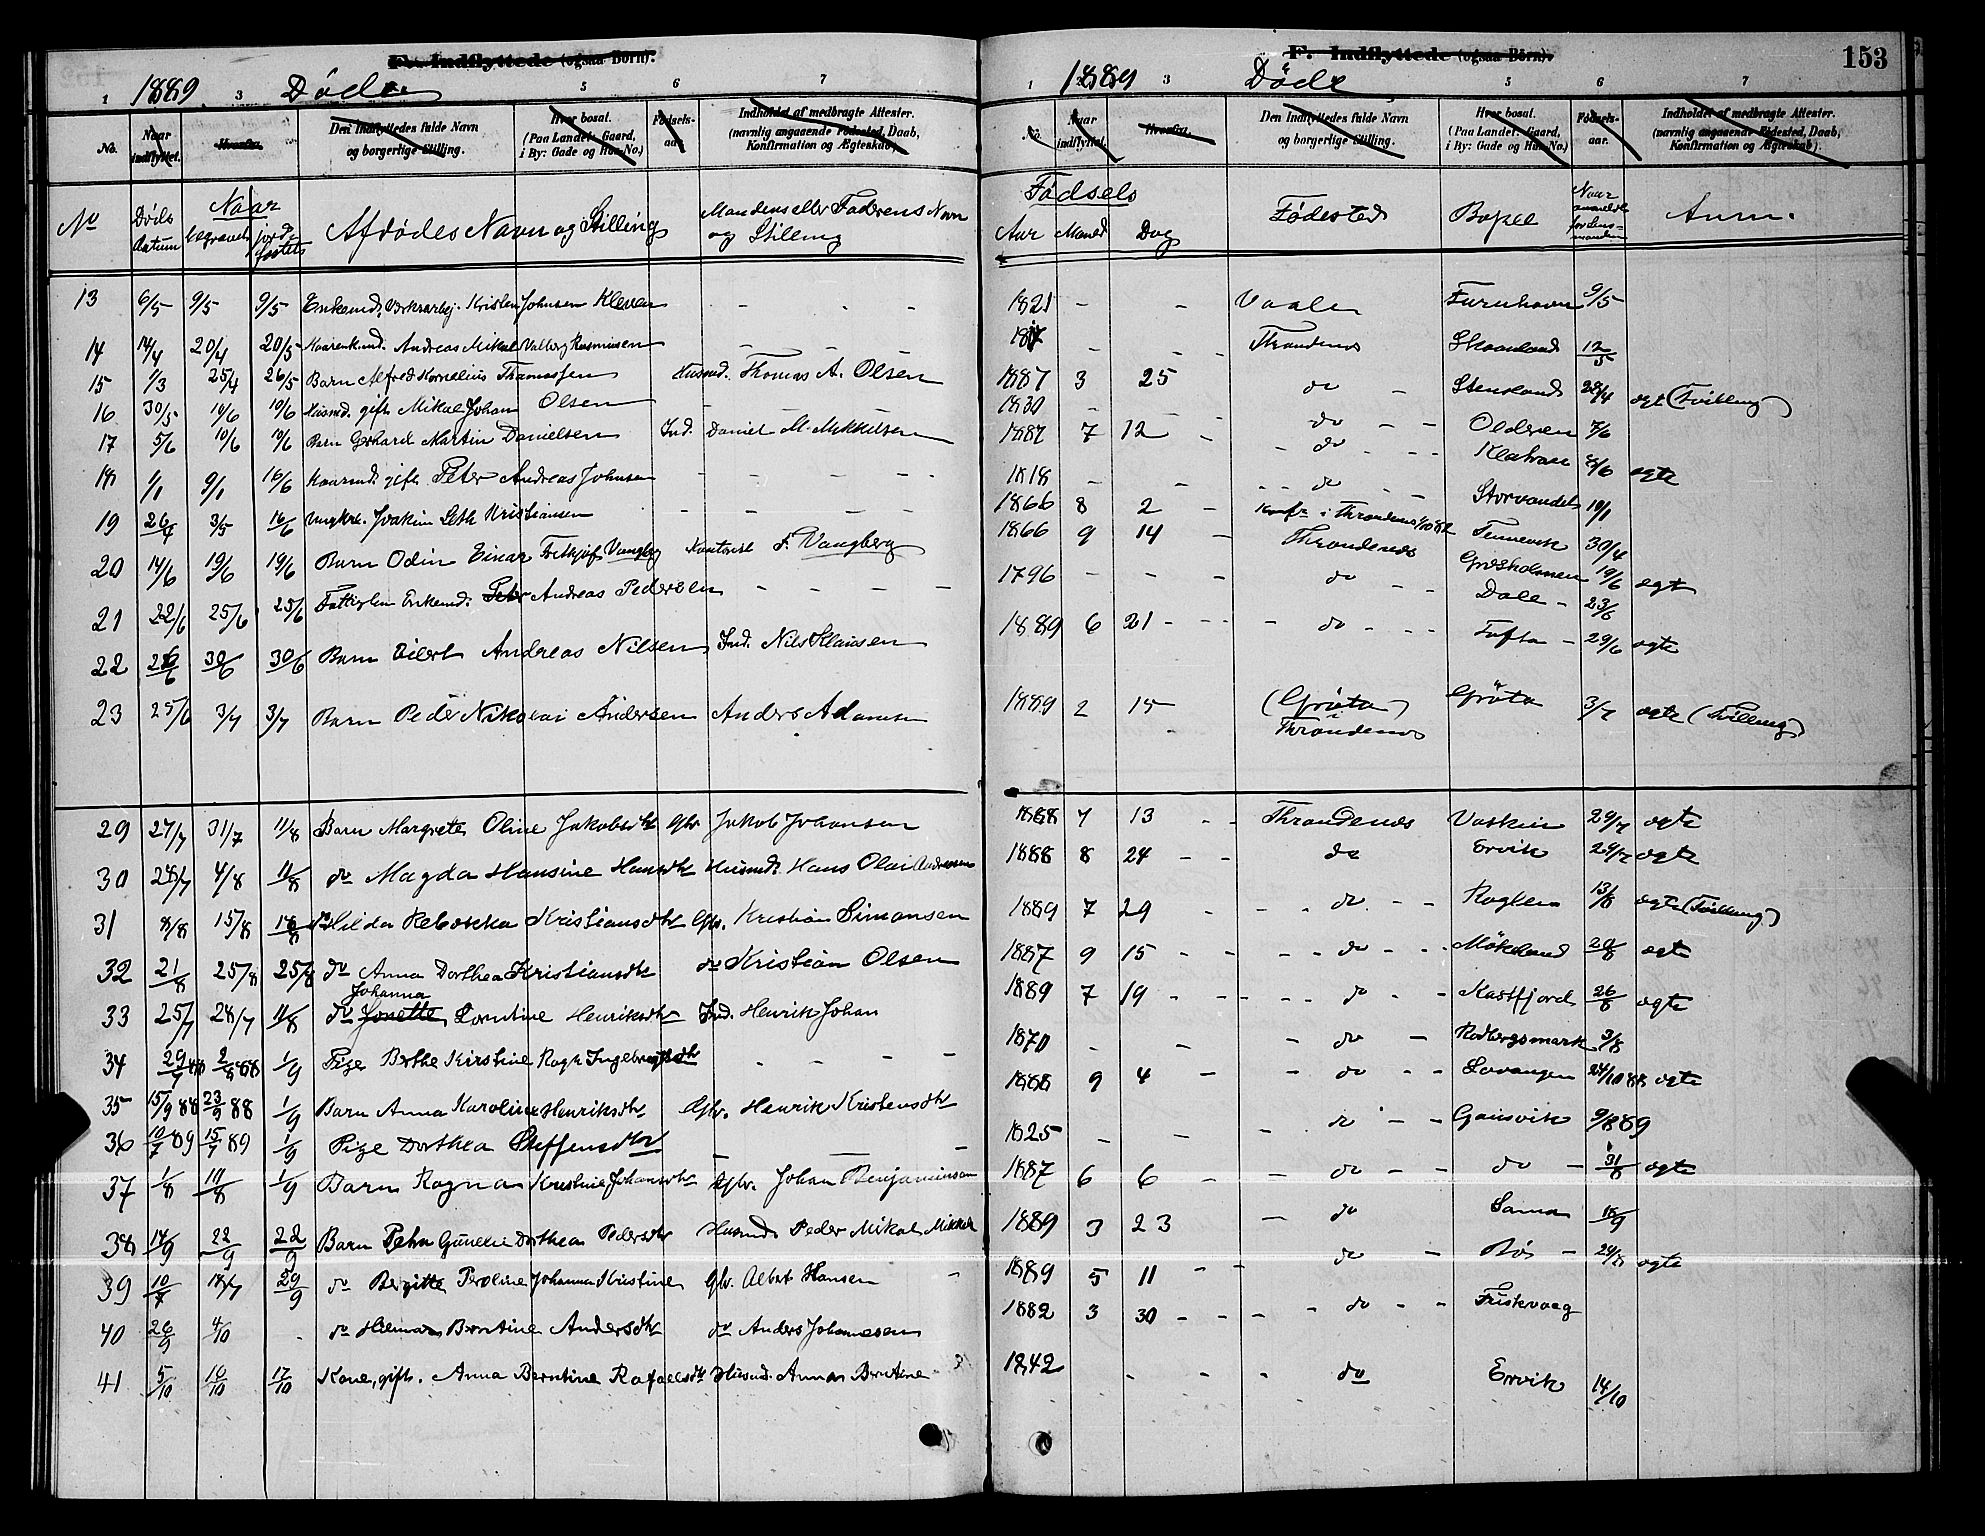 F. Indflyttede (ogsaa Børn).
1889. Døde
1 3 5 6 7
No. Naar indflyttet. Hvorfra. Den Indflyttedes fulde Navn og borgerlige Stilling. Hvor bosat. (Paa Landet: Gaard, i By: Gade og Hus-No.) Fødsels-aar. Indholdet af medbragte Attester. (navnlig angaaende Fødested, Daab, Konfirmation og Ægteskab).
No Døds datum Naar begravet jordfæstet Afdødes Navn og Stilling Mandens eller Faderens Navn og Stilling
13 6/5 9/5 9/5 Enkemd. Kristen Johnsen Kleven - - -
14 14/4 20/4 20/5 Kaarenkmd. Andreas Mikal Valberg Rasmussen - -
15 1/3 25/4 26/5 Barn Alfred Kornelius Thomassen Husmd. Thomas A. Olsen
16 30/5 10/6 10/6 Husmd. gift Mikal Johan Olsen - - -
17 5/6 10/6 10/6 Barn Gerhard Martin Danielsen Ind. Daniel M. Mikkelsen
18 1/1 9/1 16/6 Kaarmd. gift Peter Andreas Johnsen - - - -
19 26/4 3/5 16/6 Ungkrl. Joakim Seth Kristiansen - - - -
20 14/6 19/6 19/6 Barn Odin Einar Frithjof Vangberg Kontorist F. Vangberg
21 22/6 25/6 25/6 Fattiglem Enkemd. Peter Andreas Pedersen - - -
22 26/6 30/6 30/6 Barn Eilert Andreas Nilsen Ind. Nils Klausen
23 25/6 3/7 3/7 Barn Peder Nikolai Andersen Anders Adamsen
29 27/7 31/7 11/8 Barn Margrete Oline Jakobsdtr Gbr. Jakob Johansen
30 28/7 4/8 11/8 do Magda Hansine Hansdtr Husmd. Hans Olai Andreassen
31 8/8 15/8 18/8 do Hilda Rebekka Kristiansdtr Gbr. Kristian Simonsen
32 21/8 25/8 25/8 do Anna Dorthea Kristiansdtr do Kristian Olsen
Johanna
33 25/7 28/7 11/8 do Jonette Berntine Henriksdtr Ind. Henrik Johan
34 29/7 2/8 1/9 Pige Berthe Kirstine Ragn Ingebrigtsdtr - - - -
35 15/9 88 23/9 88 1/9 Barn Anna Karoline Henriksdtr Gbr. Henrik Kristensdtr
36 10/7 89 15/7 89 1/9 Pige Dorthea Steffensdtr - - -
37 1/8 11/8 1/9 Barn Ragna Kristine Johansdtr Gbr. Johan Benjaminsen
38 14/9 22/9 22/9 Barn Petra Gunelie Dorthea Pedersdtr Husmd. Peder Mikal Mikkels
39 10/7 18/7 29/9 do Bergitte Peroline Johanna Kristine Gbr. Albert Hansen
40 26/9 4/10 - do Helmine Berntine Andersdtr do Anders Johannesen
41 5/10 10/10 17/10 Kone, gift. Anna Berntine Rafaelsdtr Husmd. Anna Berntine
F. Indflyttede (ogsaa Børn).
153
1889 Døde
1 3 5 6 7
No. Naar indflyttet. Hvorfra. Den Indflyttedes fulde Navn og borgerlige Stilling. Hvor bosat. (Paa Landet: Gaard, i By: Gade og Hus-No.) Fødsels-aar. Indholdet af medbragte Attester. (navnlig angaaende Fødested, Daab, Konfirmation og Ægteskab).
Fødsels Aar Maaned Dag Fødested Bopæl Naar anmeldt for Lensmanden Anm.
1821 - - Vaale Furuhavn 9/5
1817 - - - Throndenes Skaanland 12/5
1887 3 25 do - Stensland 28/4 ægte (Tvilling)
1830 - - - do - - Olderen 7/6
1887 7 12 - - do - - - 8/6 ægte
1818 - - - do - - Storvandet 10/1
1866 8 2 - Konfr. i Throndenes 1882 Tennevik 30/4
1866 9 14 - Throndenes Grasholmen 19/6 ægte
1796 - - - do - - Dale - 23/6
1889 6 21 - - - do - - - Tofta - 29/6 ægte
1889 2 15 - (Grøta) i Throndenes Grøta 3/7 ægte (Tvilling)
1888 7 13 - - Throndenes Vaskin 29/7 ægte
1888 8 24 - - do Ervik 29/7 ægte
1889 7 29 - - do - - Roglen 13/8 ægte (Tvilling)
1887 9 15 - - - do - - Møkeland 20/8 ægte
1889 7 19 - - - - do - - Kastfjord 26/8 ægte
1870 - - - do - Rødbergsmark 3/8
1888 9 4 - - do - - Sovangen 24/10 88 ægte
1825 - - - do - - Gausvik 9/8 89
1887 6 6 - - do - - do - 31/8 ægte
1889 3 23 - do Sama 18/9
1889 5 11 - - do - Bøs - 29/8 ægte
1882 3 30 - - - - do - - Fiskvaag
1842 - - - do Ervik 14/10